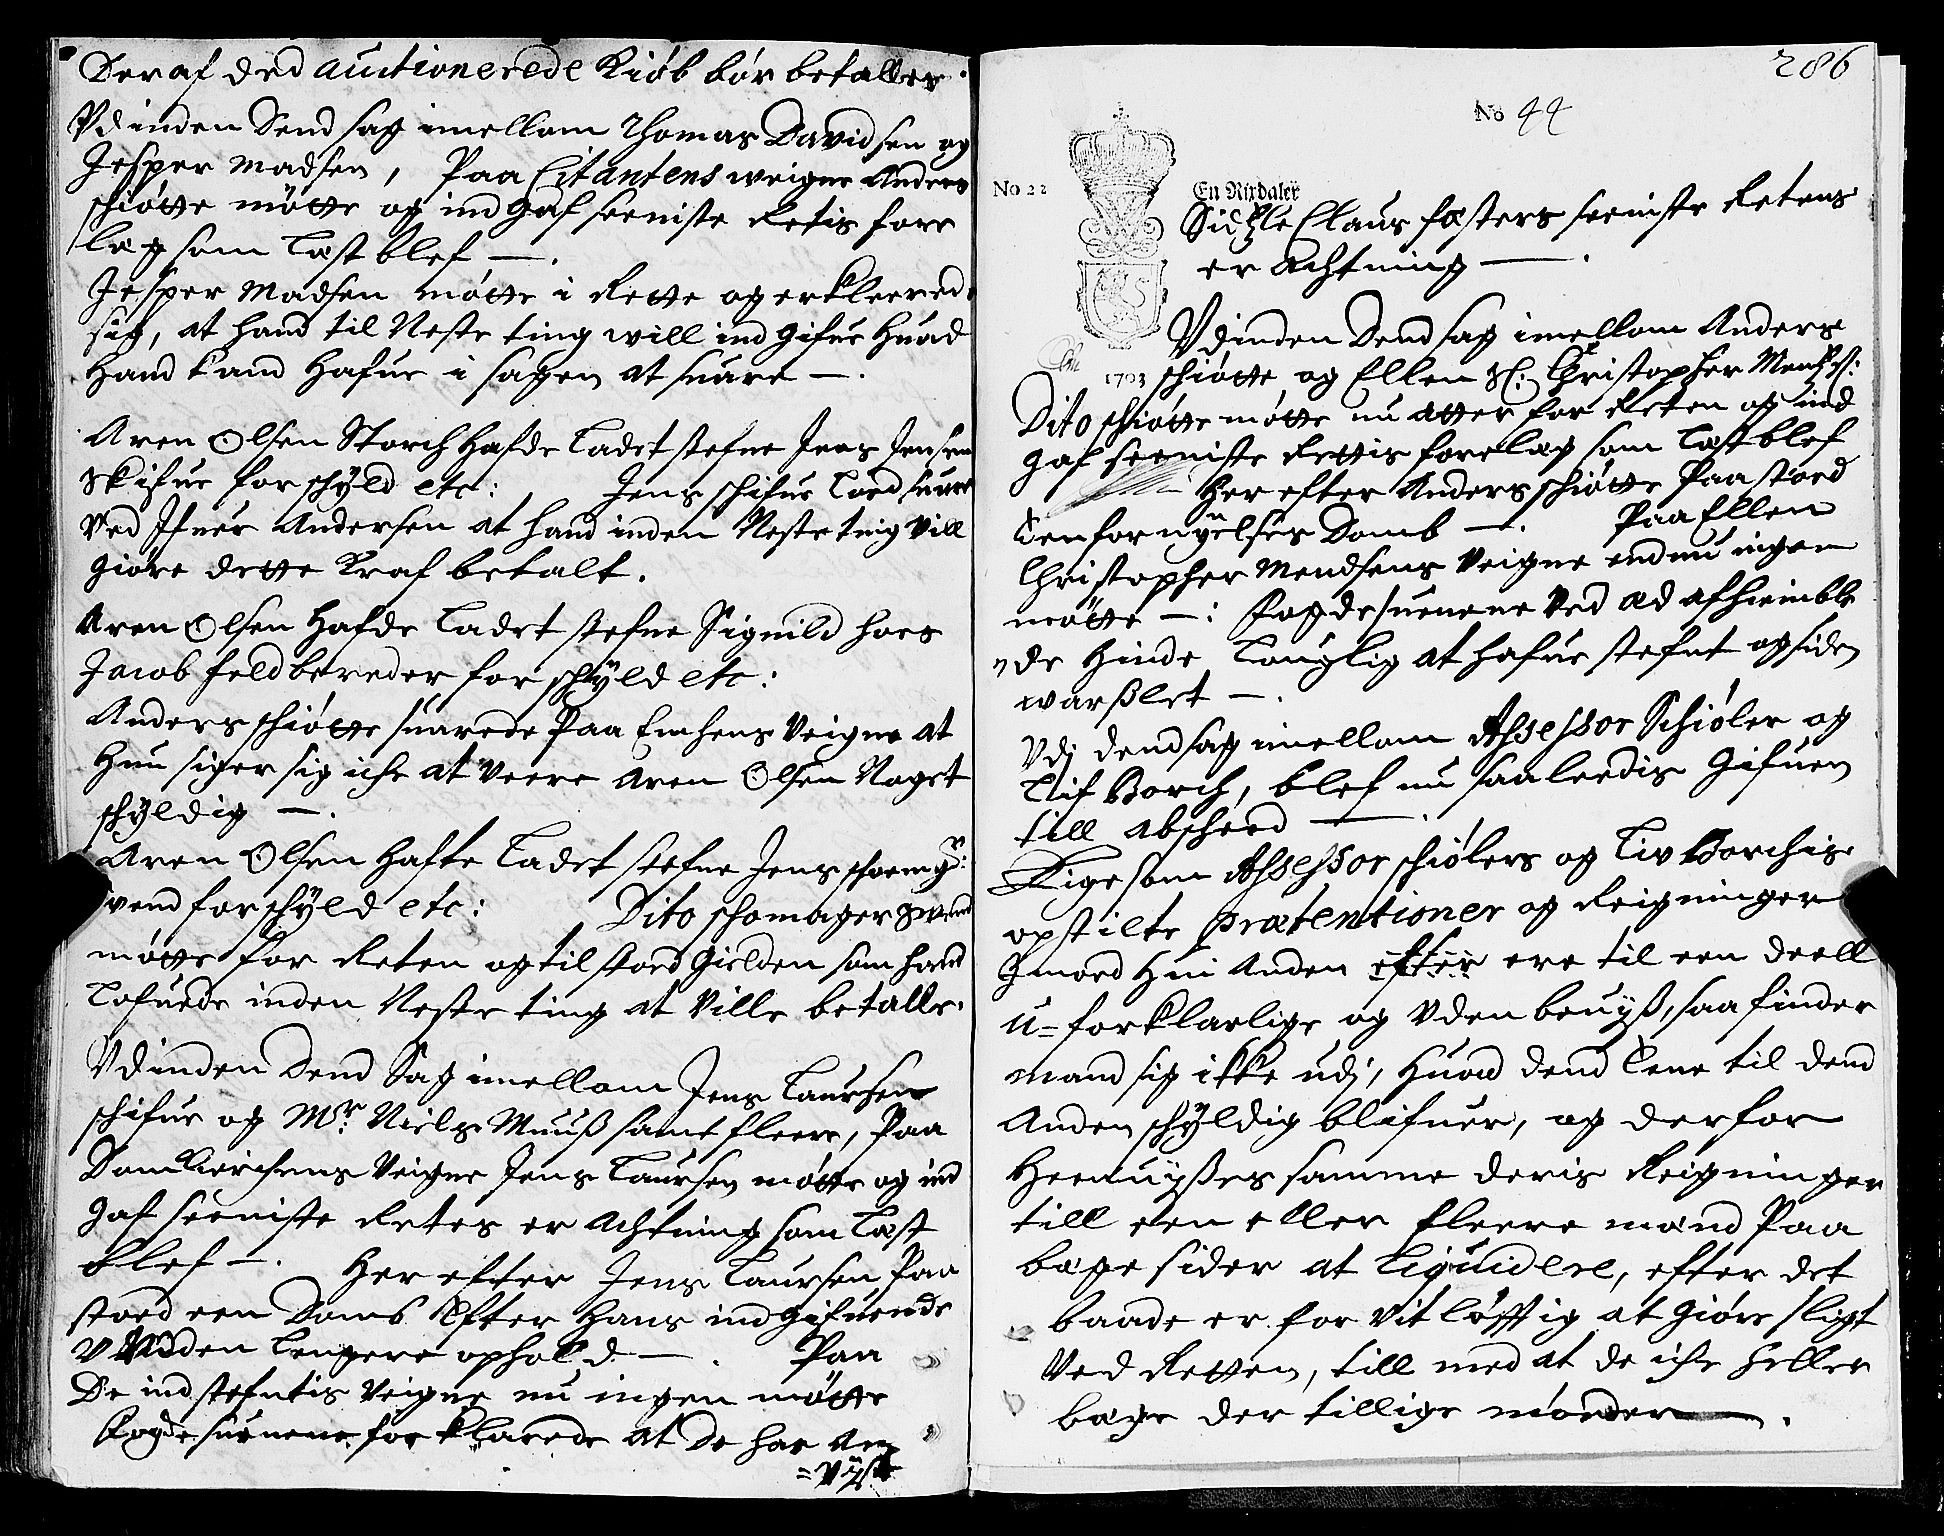 Der af ded auctionerede Kiøb bør betalles.
Vdinden Dend sag imellom Thomas Davidsen og
Jesper Madsen, Paa Citantens weigne Anders
schiøtte møtte og ind gaf seeniste Retis fore
lag som Læst blef —.
Jesper Madsen møtte i Rette og erkleerede
sig, at hand til Neste ting will ind gifue Huad
Hand kand Hafue i sagen at suare —.
Aren Olsen Storch Hafde Ladet stefne Jens Jensen
Skifue for schyld etc: Jens schifue Loed suare
Ved Ifuer Andersen at hand inden Neste ting vill
giøre dette Kraf betalt.
Aren Olsen Hafde Ladet stefne Signild hoes
Jacob feldbereder for schyld etc:
Anders schiøtte suarede Paa Enchens Veigne at
Hun siger sig iche at veere Aren Olsen Noget
schyldig —.
Aren Olsen Hafte Ladet stefne Jens schoemgr:
svend for schyld etc: Dito schomager Svend
møtte for Reten og tilstoed gielden som hand
Lofuede inden Neste ting at Ville betalle.
Vdinden Dend Sag imellom Jens Laursen
schifue og Mr. Niels Muuß samt fleere, Paa
Domkierchens Veigne Jens Laursen møtte og ind
gaf seeniste Retes er Achtning som Læst
blef —. Her efter Jens Laursen Paa
stoed een Domb Efter Hans ind gifuende
V den Lengere ophold —. Paa
De ind stefntis Veigne nu ingen møtte
Fogdesuenene forklarede at De har An
=vijst
286
No 44
No 22
En Rixdaler
1703
Sidtzle Claus fosters seeniste Retens
er Achtning —.
Vdinden Dend sag imellom Anders
schiøtte og Ellen Sl: Christopher Mentzs:
Dito schiøtte møtte nu atter for Reten og ind
gaf seeniste Rettis forelag som Læst blef
Her efter Anders schiøtte Paastoed
Een fornyelses Domb —. Paa Ellen
Christopher Mendsens Veigne endnu ingen
møtte —: Fogdesuenene Ved æd afhiemble
"de Hinde Louglig at hafue stefnt og siden
warßlet —.
Vdj dend sag imellom Assessor Schiøler og
Lif Borch, blef nu saaleedis gifuen
till abscheed —.
Ligesom Assessor schiølers og Liv Borchis
opstilte prætentioner og Reigninger
Jmoed Huer Anden ere til een deell
u=forklarlige og Vden beuyß, saa finder
mand sig ikke udj, Huad dend Eene til dend
Anden schyldig blifuer, og derfor
Heenuyßes samme deris Reigninger
till een eller fleere mænd Paa
bæge sider at Liqvidere, efter det
baade er for vitløfftig at giøre sligt
Ved Retten, till med at de iche heller
bæge der tillige møeder —.